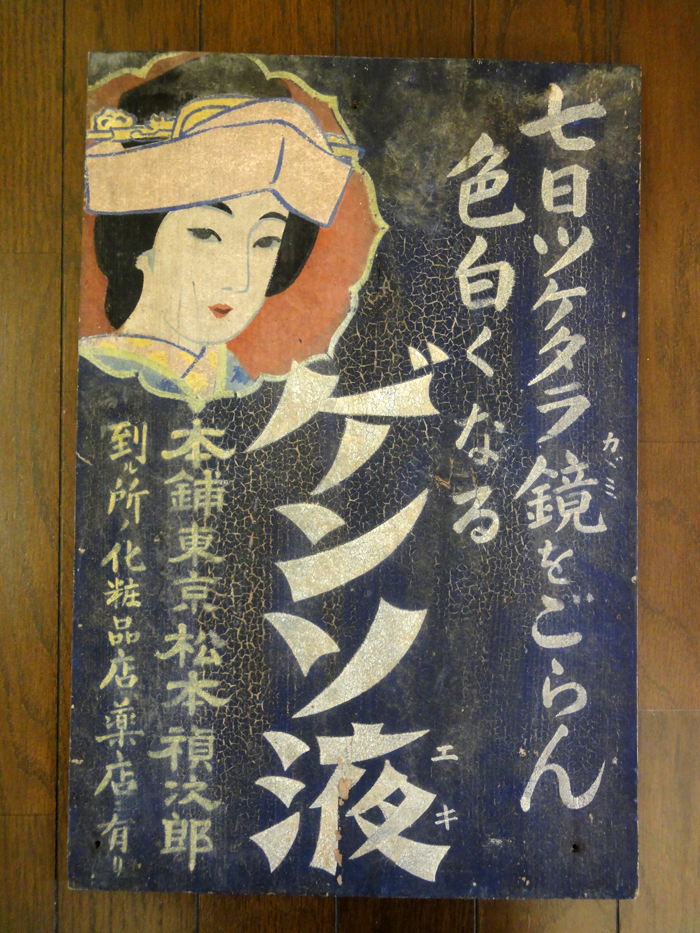 七日ツケタラ鏡をごらん
カゞミ
色白くなる
ゲンソ液
エキ
本舗東京松本禎次郎
到ル所ノ化粧品店、薬店ニ有リ